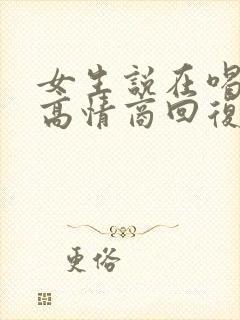 女生說在喝
高情商回復
更俗